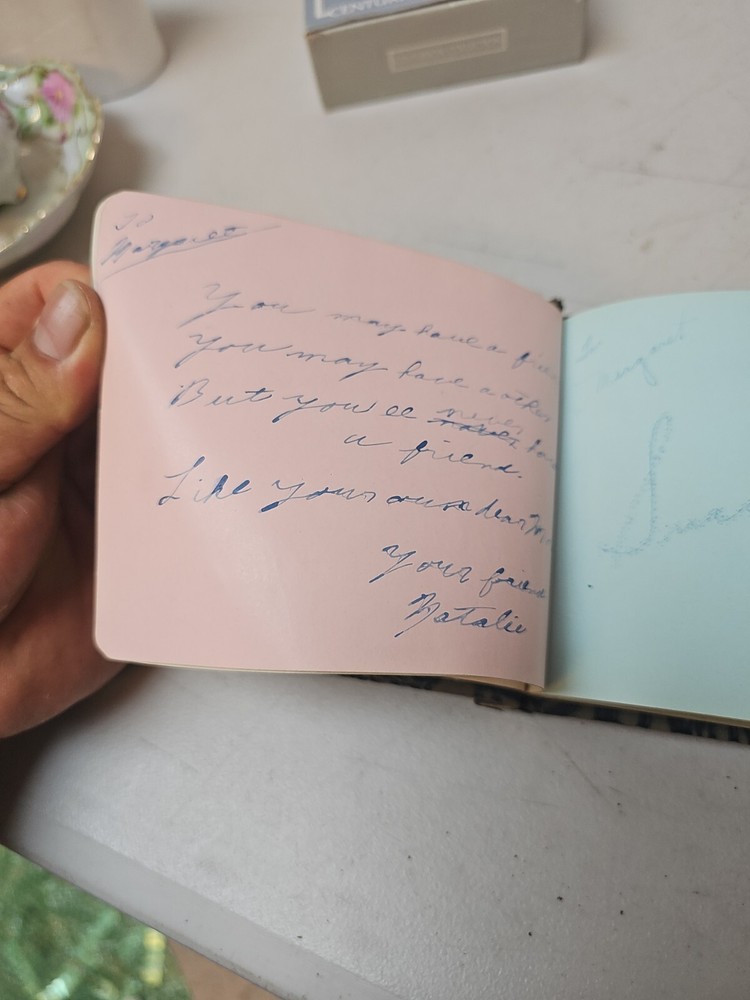 CENTURY
To
Margaret
You may have a frie
You may have a other
But you'll never never have
a friend.
Like your own dear Mo
Your friend
Natalie
To
Margaret